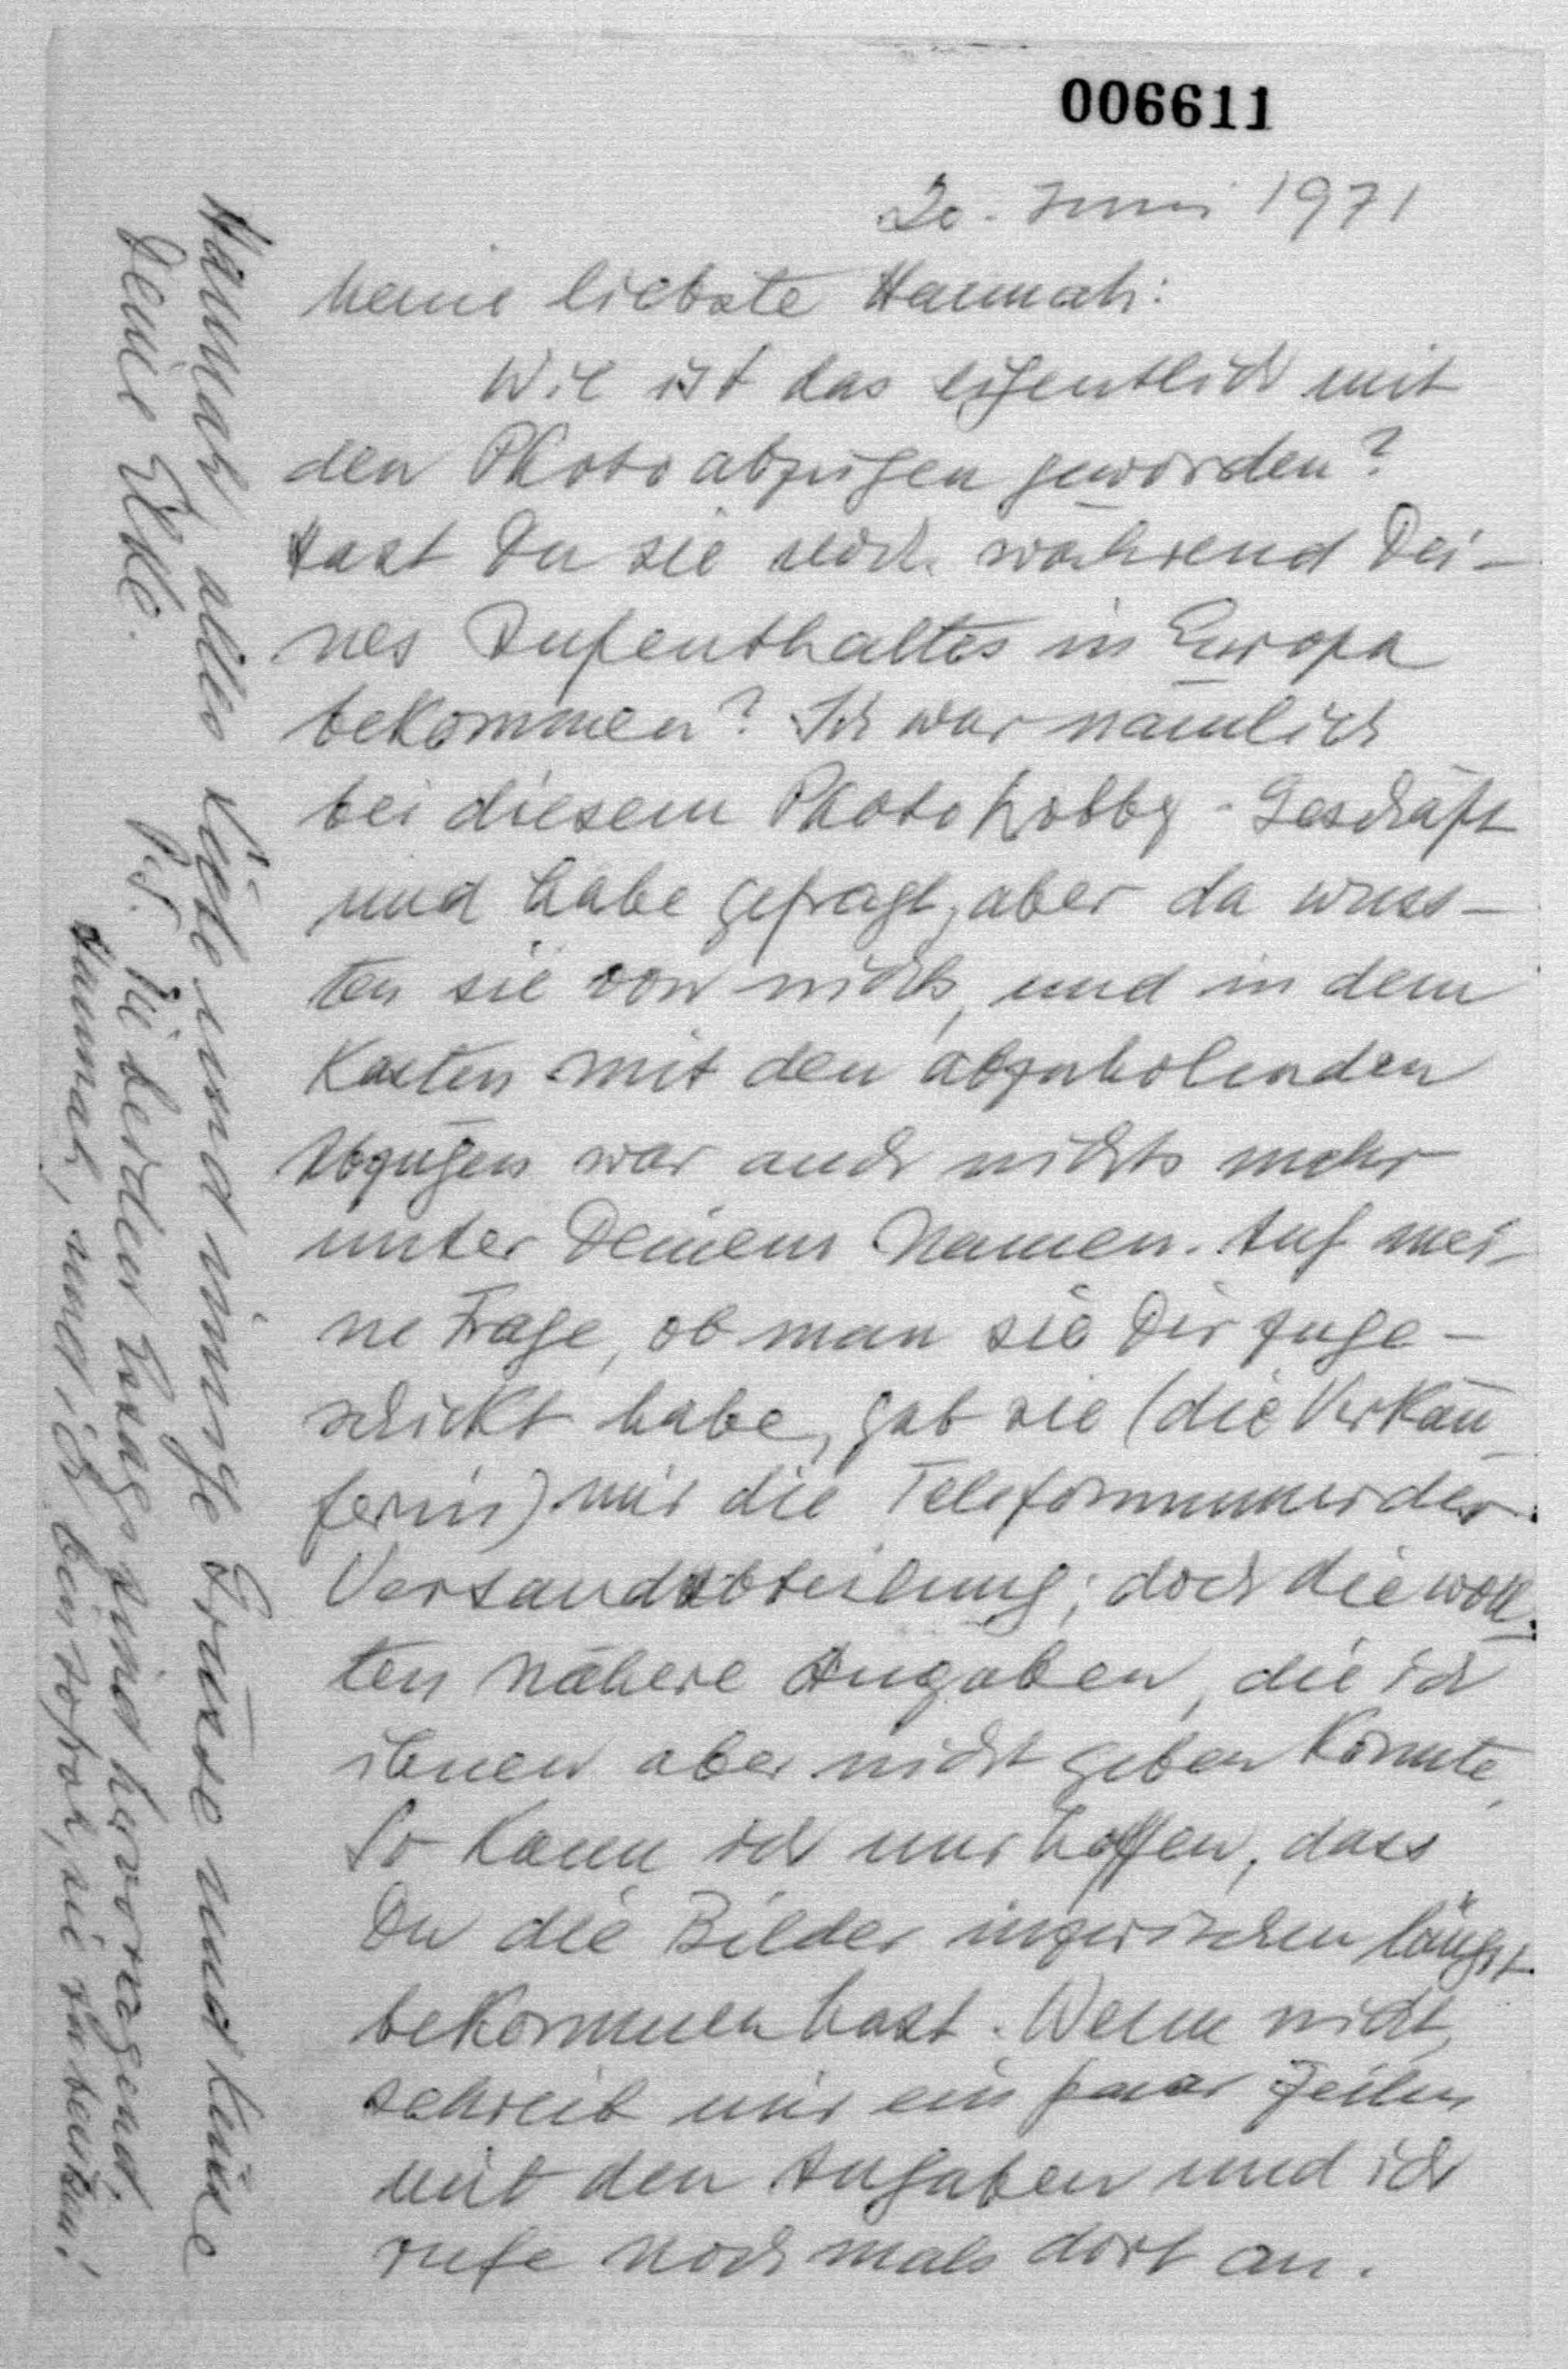 006611
20. Juni 1971
Meine liebste Hannah:
Wie ist das eigentlich mit
den Photoabzügen geworden?
Hast Du sie noch während Dei-
nes Aufenthaltes in Europa
bekommen? Ich war nämlich
bei diesem Photohobby-Geschäft
und habe gefragt, aber da wuss-
ten sie von nichts, und in dem
Kasten mit den abzuholenden
Abzügen war auch nichts mehr
unter Deinem Namen. Auf mei-
ne Frage, ob man sie Dir zuge-
schickt habe, gab sie (die Verkäu-
ferin) mir die Telefonnummer der
Versandabteilung; doch die woll-
ten nähere Angaben, die ich
ihnen aber nicht geben konnte.
So kann ich nur hoffen, dass
Du die Bilder inzwischen längst
bekommen hast. Wenn nicht,
schreib mir ein paar Zeilen
mit den Angaben und ich
rufe nochmals dort an.
Hannah, alles Liebe und innige Grüsse und Küsse
Deine Elke.
P.S. Die beiden Essays sind hervorragend,
Hannah, und ich bin so froh, sie zu